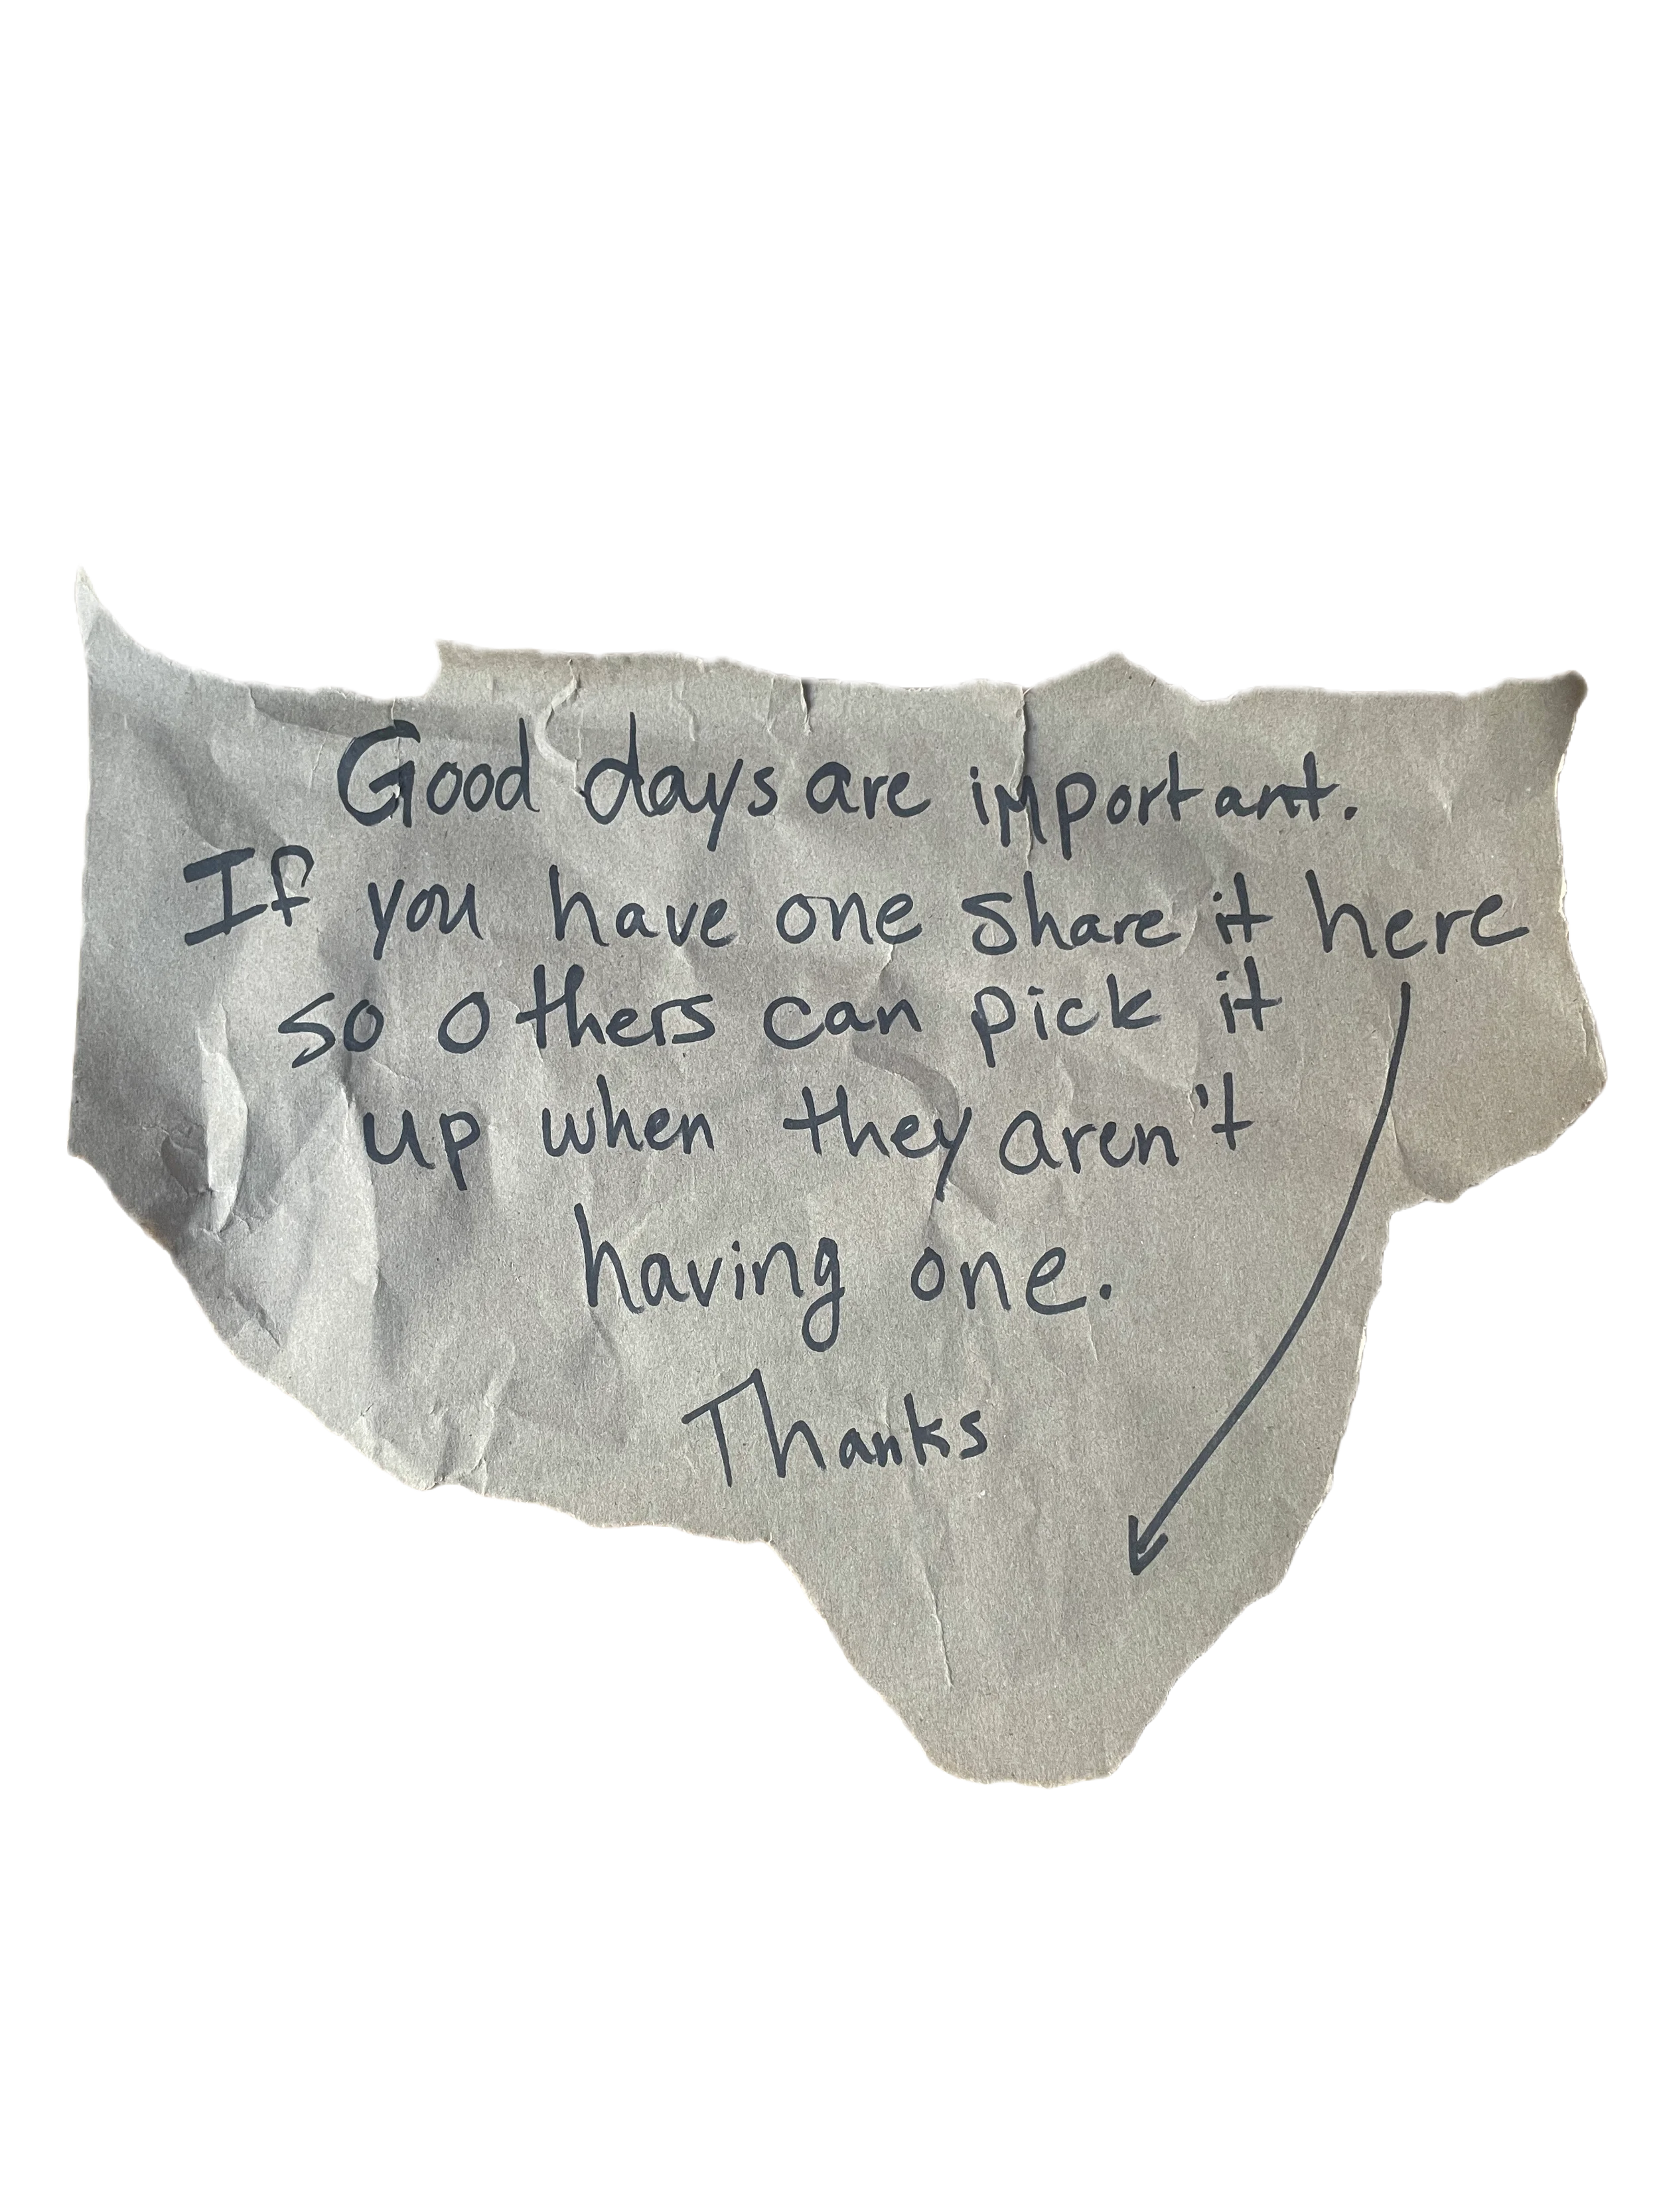 Good days are important.
If you have one share it here
so others can pick it
up when they aren't
having one.
Thanks